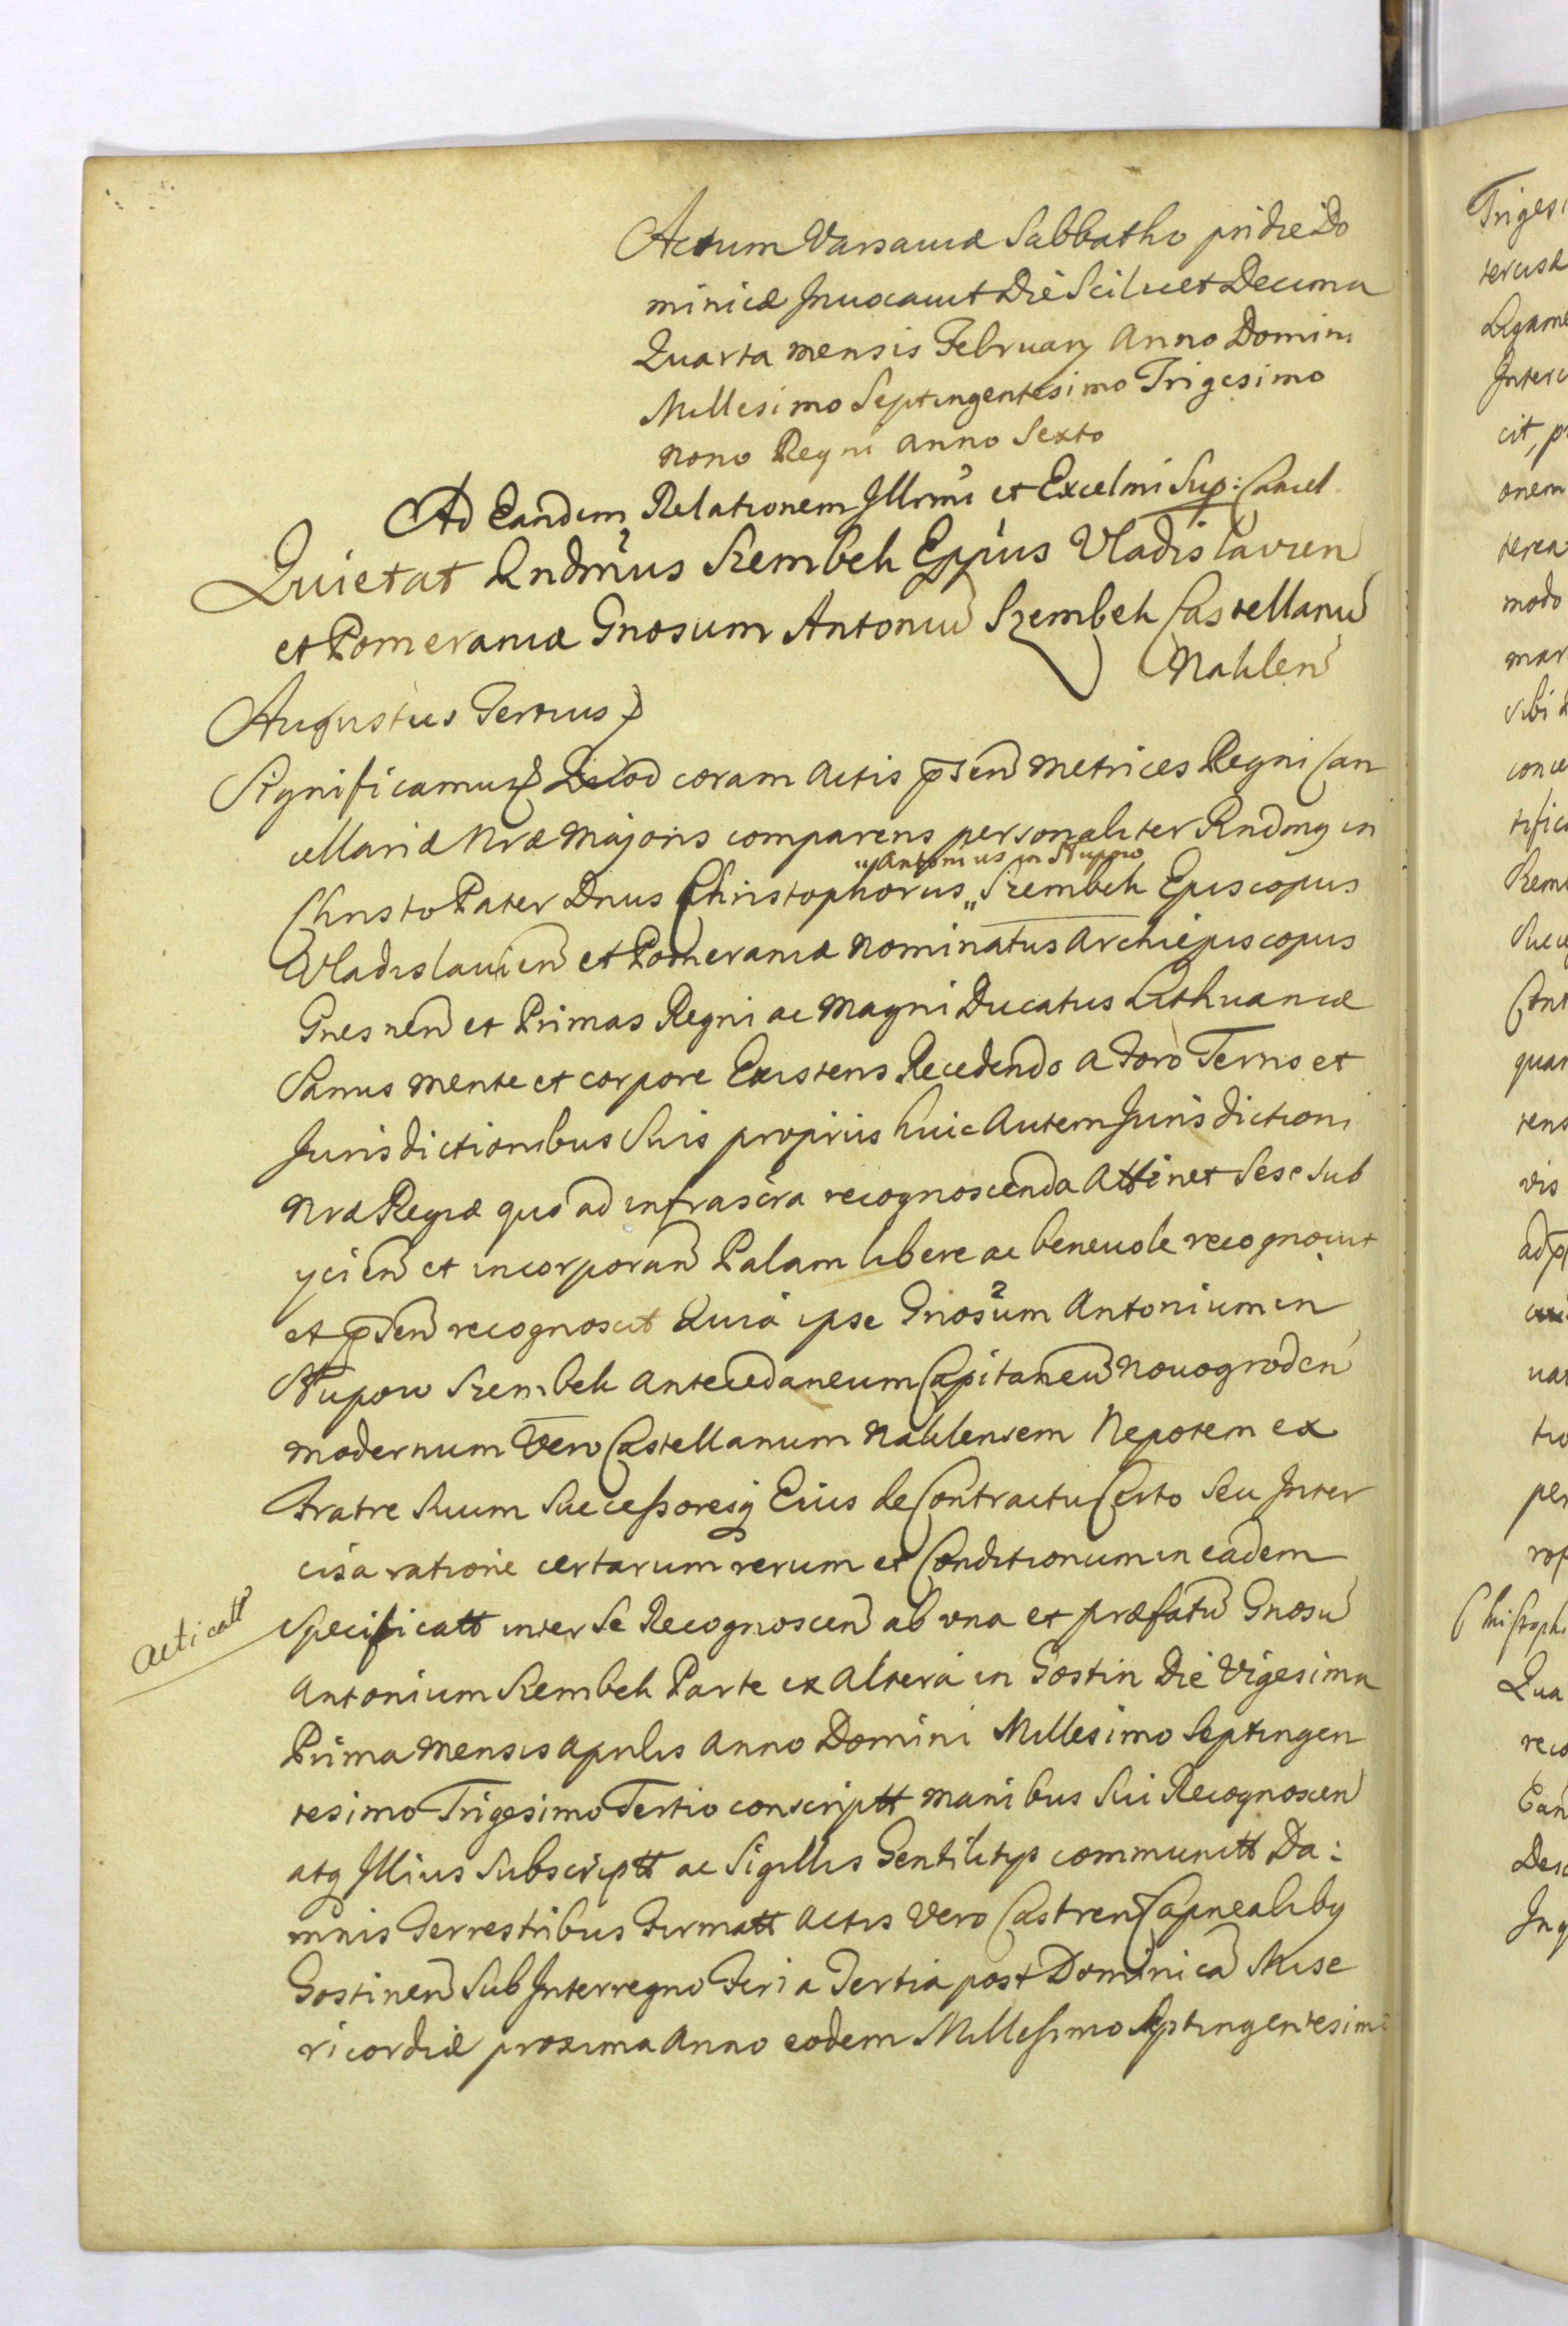 Actum Varsaviæ Sabbatho pridie Do
minicæ Invocavit Die Scilicet Decima
Quarta mensis February Anno Domini
Millesimo Septingentesimo Trigesimo
nono Regni anno Sexto
Ad Eandem Relationem Illrmi et Excelmi Sup: Cancel
Quietat Rndmus Szembek Eppus Vladislavien
et Pomeraniæ Gnosum Antoniu Szembek Castellanu
Naklen
Augustus Tertius
Significamus Quod coram Actis psen Metrices Regni Can
cellariæ Nræ Majoris comparens personaliter Rndmg in
"Antonius in Słupow
Christo Pater Dnus Christophorus „ Szembek Episcopus
Vladislavien et Pomeraniæ nominatus Archiepiscopus
Gnesnen et Primas Regni ac Magni Ducatus Lithuaniæ
Sanus mente et corpore Existens Recedendo a Foro Terris et
Jurisdictionibus Suis propriis huic Autem Jurisdictioni
Nræ Regiæ quo ad infrascra recognoscenda Attinet Sese Sub
ycien et incorporan Palam libere ac benevole recognovit
et psen recognoscit Quia ipse Gnosum Antonium in
Słupow Szembek Antecedaneum Capitaneu Novogroden
modernum Vero Castellanum Naklensem Nepotem ex
Fratre Suum Successoresq Eius de Contractu Certo Seu Inter
cisa ratione certarum rerum et Conditionum in eadem
specificatt inter Se Recognoscen ab una et præfatu Gnosu
acticatt
Antonium Szembek Parte ex Altera in Gostin Die Vigesima
Prima mensis Aprilis Anno Domini Millesimo Septingen
tesimo Trigesimo Tertio conscriptt manibus Sui Recognoscen
atq Illius Subscriptt ac Sigillis Gentilitys communitt Da:
mnis Terrestribus Firmatt Actis Vero Castren Capnealibg
Gostinen Sub Interregno Feria Tertia post Dominica Mise
ricordiæ proxima Anno eodem Millesimo Septingentesimo